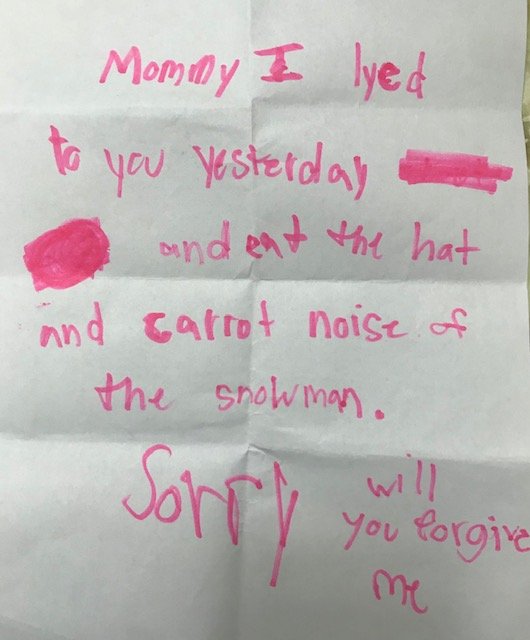 Mommy I lyed
to you yesterday
and eat the hat
and carrot noise of
the snowman.
Sorry will
you forgive
me